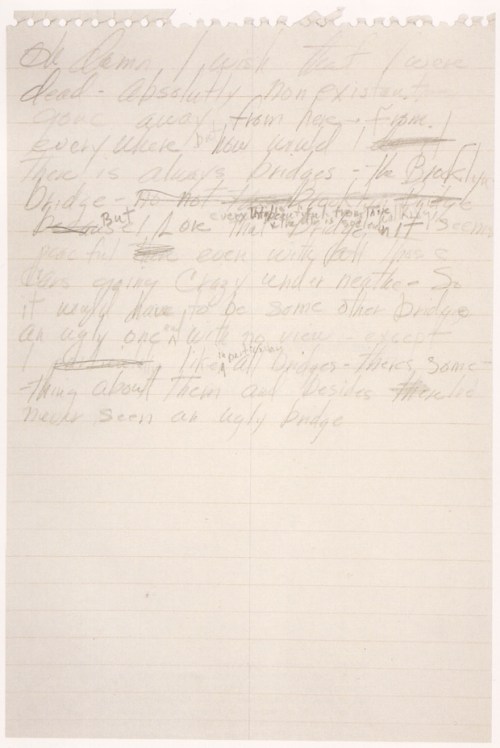 Oh damn I wish that I were
dead - absolutly nonexistent -
gone away from here - From
everywhere but how would I
There is always bridges - the Brooklyn
bridge - no not the Brooklyn Bridge
because But I Love that Bridge everything is beautiful from there air is so clean it seems
peaceful there even with all thos
cars going Crazy under neathe - So
it would have to be some other bridge
an ugly one and with no view - except
I like in particular all bridges - theres some-
-thing about them and besides I've
never seen an ugly bridge